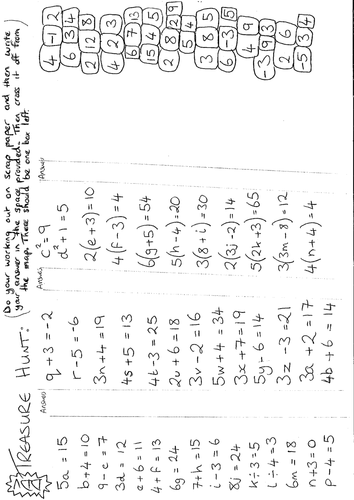 TREASURE HUNT:
(Do your working out on scrap paper and then write
your answer in the space provided. Then cross it off from
the map. There should be one box left.)
Answers
5a = 15
b + 4 = 10
9 - c = 7
3d = 12
e + 6 = 11
4 + f = 13
6g = 24
7 + h = 15
i - 3 = 6
8j = 24
k ÷ 3 = 5
l ÷ 4 = 3
6m = 18
n + 3 = 0
p - 4 = 5
Answers
q + 3 = -2
r - 5 = -6
3n + 4 = 19
4s + 5 = 13
4t - 3 = 25
2u + 6 = 18
3v - 2 = 16
5w + 4 = 34
3x + 7 = 19
5y - 6 = 14
3z - 3 = 21
3a + 2 = 17
4b + 6 = 14
Answers
c² = 9
d² + 1 = 5
2(e + 3) = 10
4(f - 3) = 4
6(g + 5) = 54
5(h - 4) = 20
3(8 + i) = 30
2(3j - 2) = 14
5(2k + 3) = 65
3(3m - 8) = 12
4(n + 4) = 4
4 -1 2
6 3 4
2 12 8
4 2 3
6 7 13
15 4 5
2 8 2 9
5 4
3 8 5
6 -3 5
4 9
-3 9 3
2 6
-5 3 4